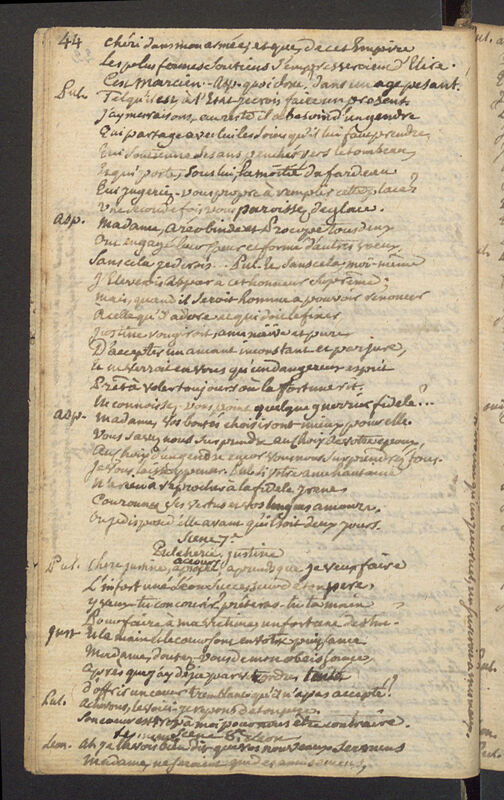 44 chéri dans mon armée, et que de cet Empire
les plus fermes soutiens s'empresseroient d'élire.
C'est Marcien. Asp. quoi donc, dans un age pesant.
Pul. Tel qu'il est, à l'Etat je crois faire un présent.
J'ay mes raisons, au reste il a besoin d'un gendre
Qui partage avec lui les soins qu'il lui faut prendre
Qui soutienne des ans penchés vers le tombeau,
et qui porte sous lui la moitié du fardeau
Qui jugeriez-vous propre à remplir cette place?
Une seconde fois vous paroissez de glace.
Asp. Madame, Areobinde et Procope tous deux
Ont engagé leur cœur et formé d'autres vœux.
Sans cela je dirois.. Pul. Et sans cela, moi-même
J'eleverois Aspar à cet honneur suprême;
Mais, quand il seroit homme à pouvoir renoncer
à ce qu'il adore
Justine rougiroit, ame naïve et pure
D'accepter un amant inconstant et parjure,
et ne verroit en vous qu'un dangereux esprit
Prêt à voler toujours où la fortune rit.
N'en connoissez-vous point quelque guerrier fidele?..
Asp. Madame, vos bontés choisiront mieux pour elle.
Vous savez nous surprendre au choix de votre époux,
Au choix d'un gendre encor vous nous surprendrez tous.
Je vous laisse y penser. Pul. Si votre ame hautaine
N'a rien à reprocher à la fidele Irene
Couronnez ses vertus et vos longues amours.
On en dispose elle avant qu'il soit deux jours.
Scene 7e
Pulcherie, Justine
Pul. Chere Justine, accours, apprends que je veux faire
L'infortuné Léon successeur de ton pere,
y veux-tu concourir? prêteras-tu ta main
Pour faire à ma victime un
Just. et la main et le cœur sont en votre puissance
Madame, doutez-vous de mon obéissance,
Après que j'ay déja par vos ordres tenté
d'offrir un cœur tremblant qu'il n'a pas accepté?
Pul. Achevons, le voici, je répond de ton pere
Son cœur est trop à moi pour nous être contraire.
Les mêmes Scene 8e. Léon
Leon. Ah je le vois bien dis que vos nouveaux sermens
Madame, ne seroient que des amusemens,